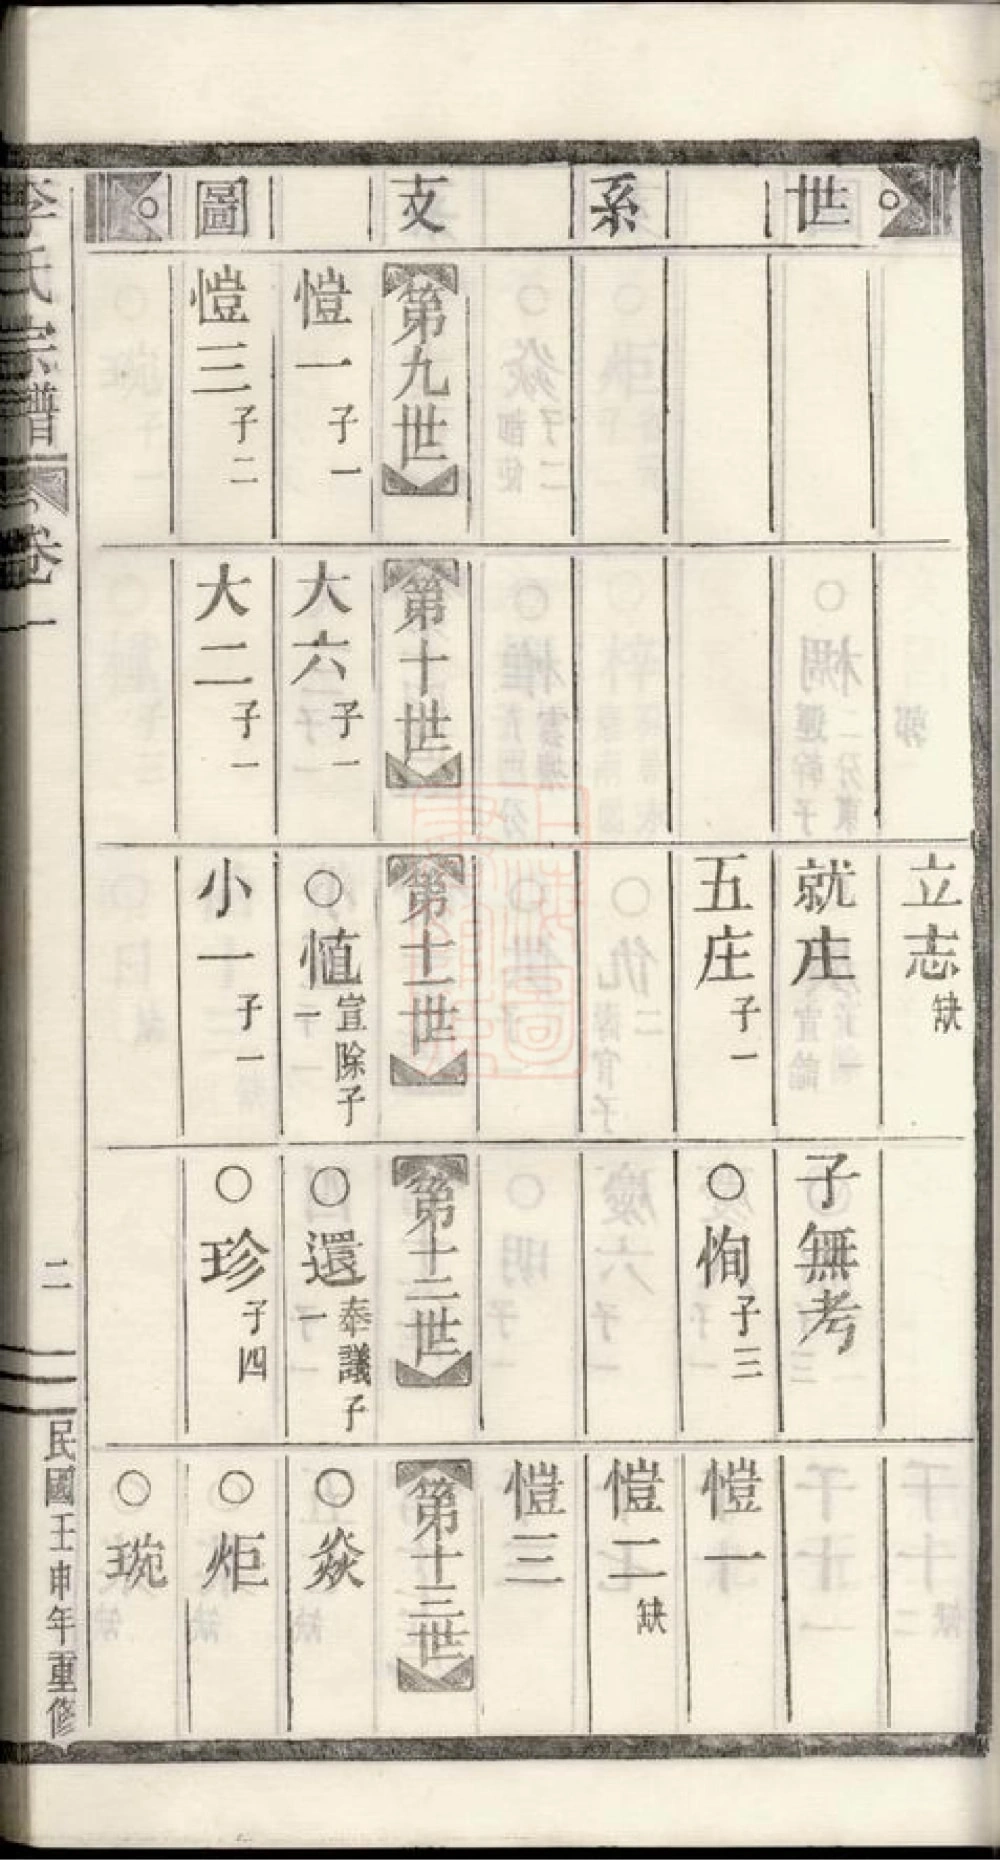 世系支圖
立志 缺
就庄
子無考
五庄 子一
○恂 子三
愷一
愷二 缺
愷三
第九世
第十世
第十一世
第十二世
第十三世
愷一 子一
大六 子一
○慥 宣除子一
○還 奉議子一
○焱
愷三 子二
大二 子一
小一 子一
○珍 子四
○炬
○琬
李氏宗譜
卷一
二
民國壬申年重修